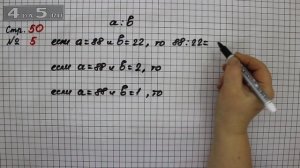 4DA5.RU
Стр. 50
№ 5
а : в
если а=88 и в=22, то 88:22=
если а=88 и в=2, то
если а=88 и в=1, то